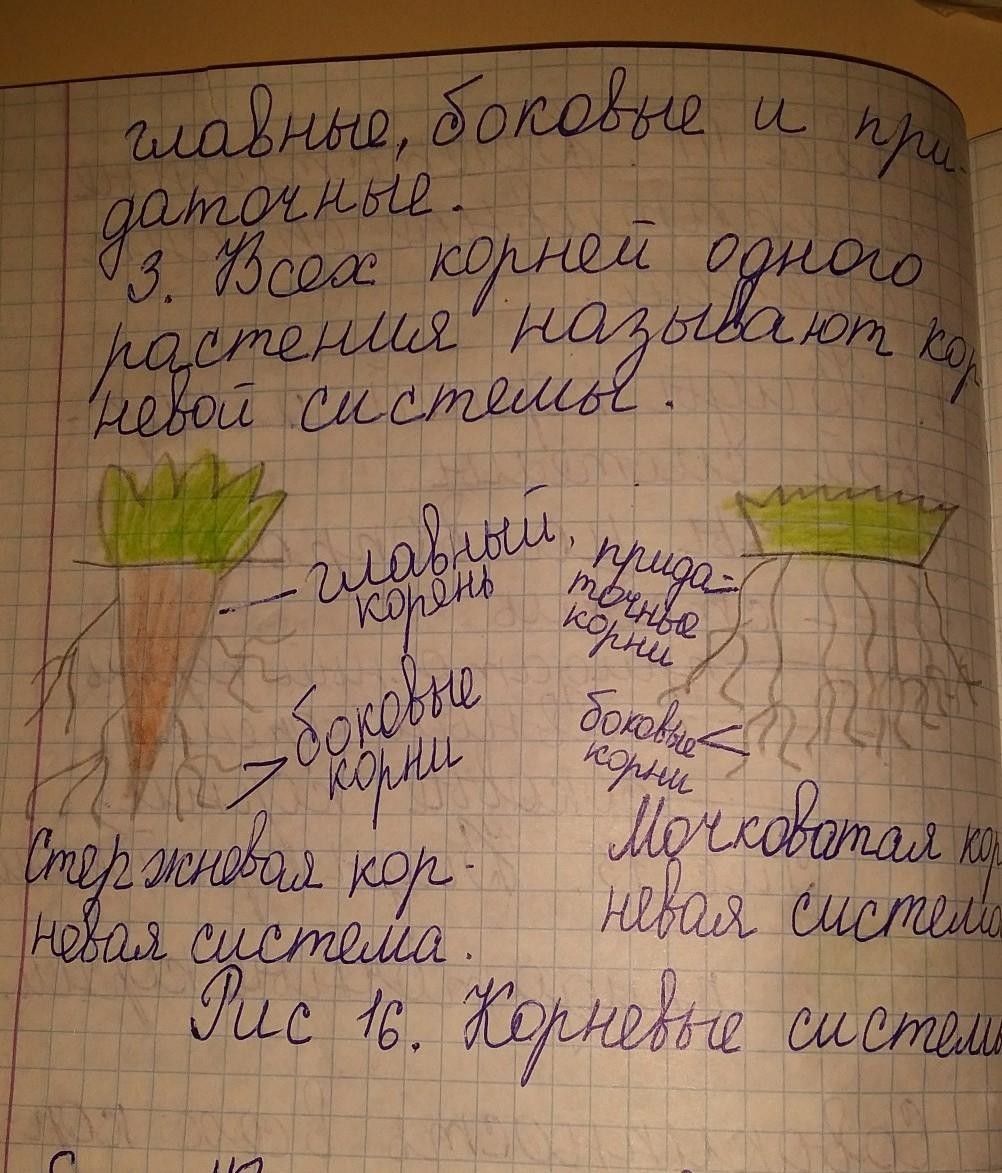 главные, боковые и при-
даточные.
3. Всех корней одного
растения называют кор
невой системы.
главный
корень
боковые
корни
прида-
точные
корни
боковые
корни
Стержневая кор-
невая система.
Мочковатая кор
невая система
Рис 16. Корневые системы